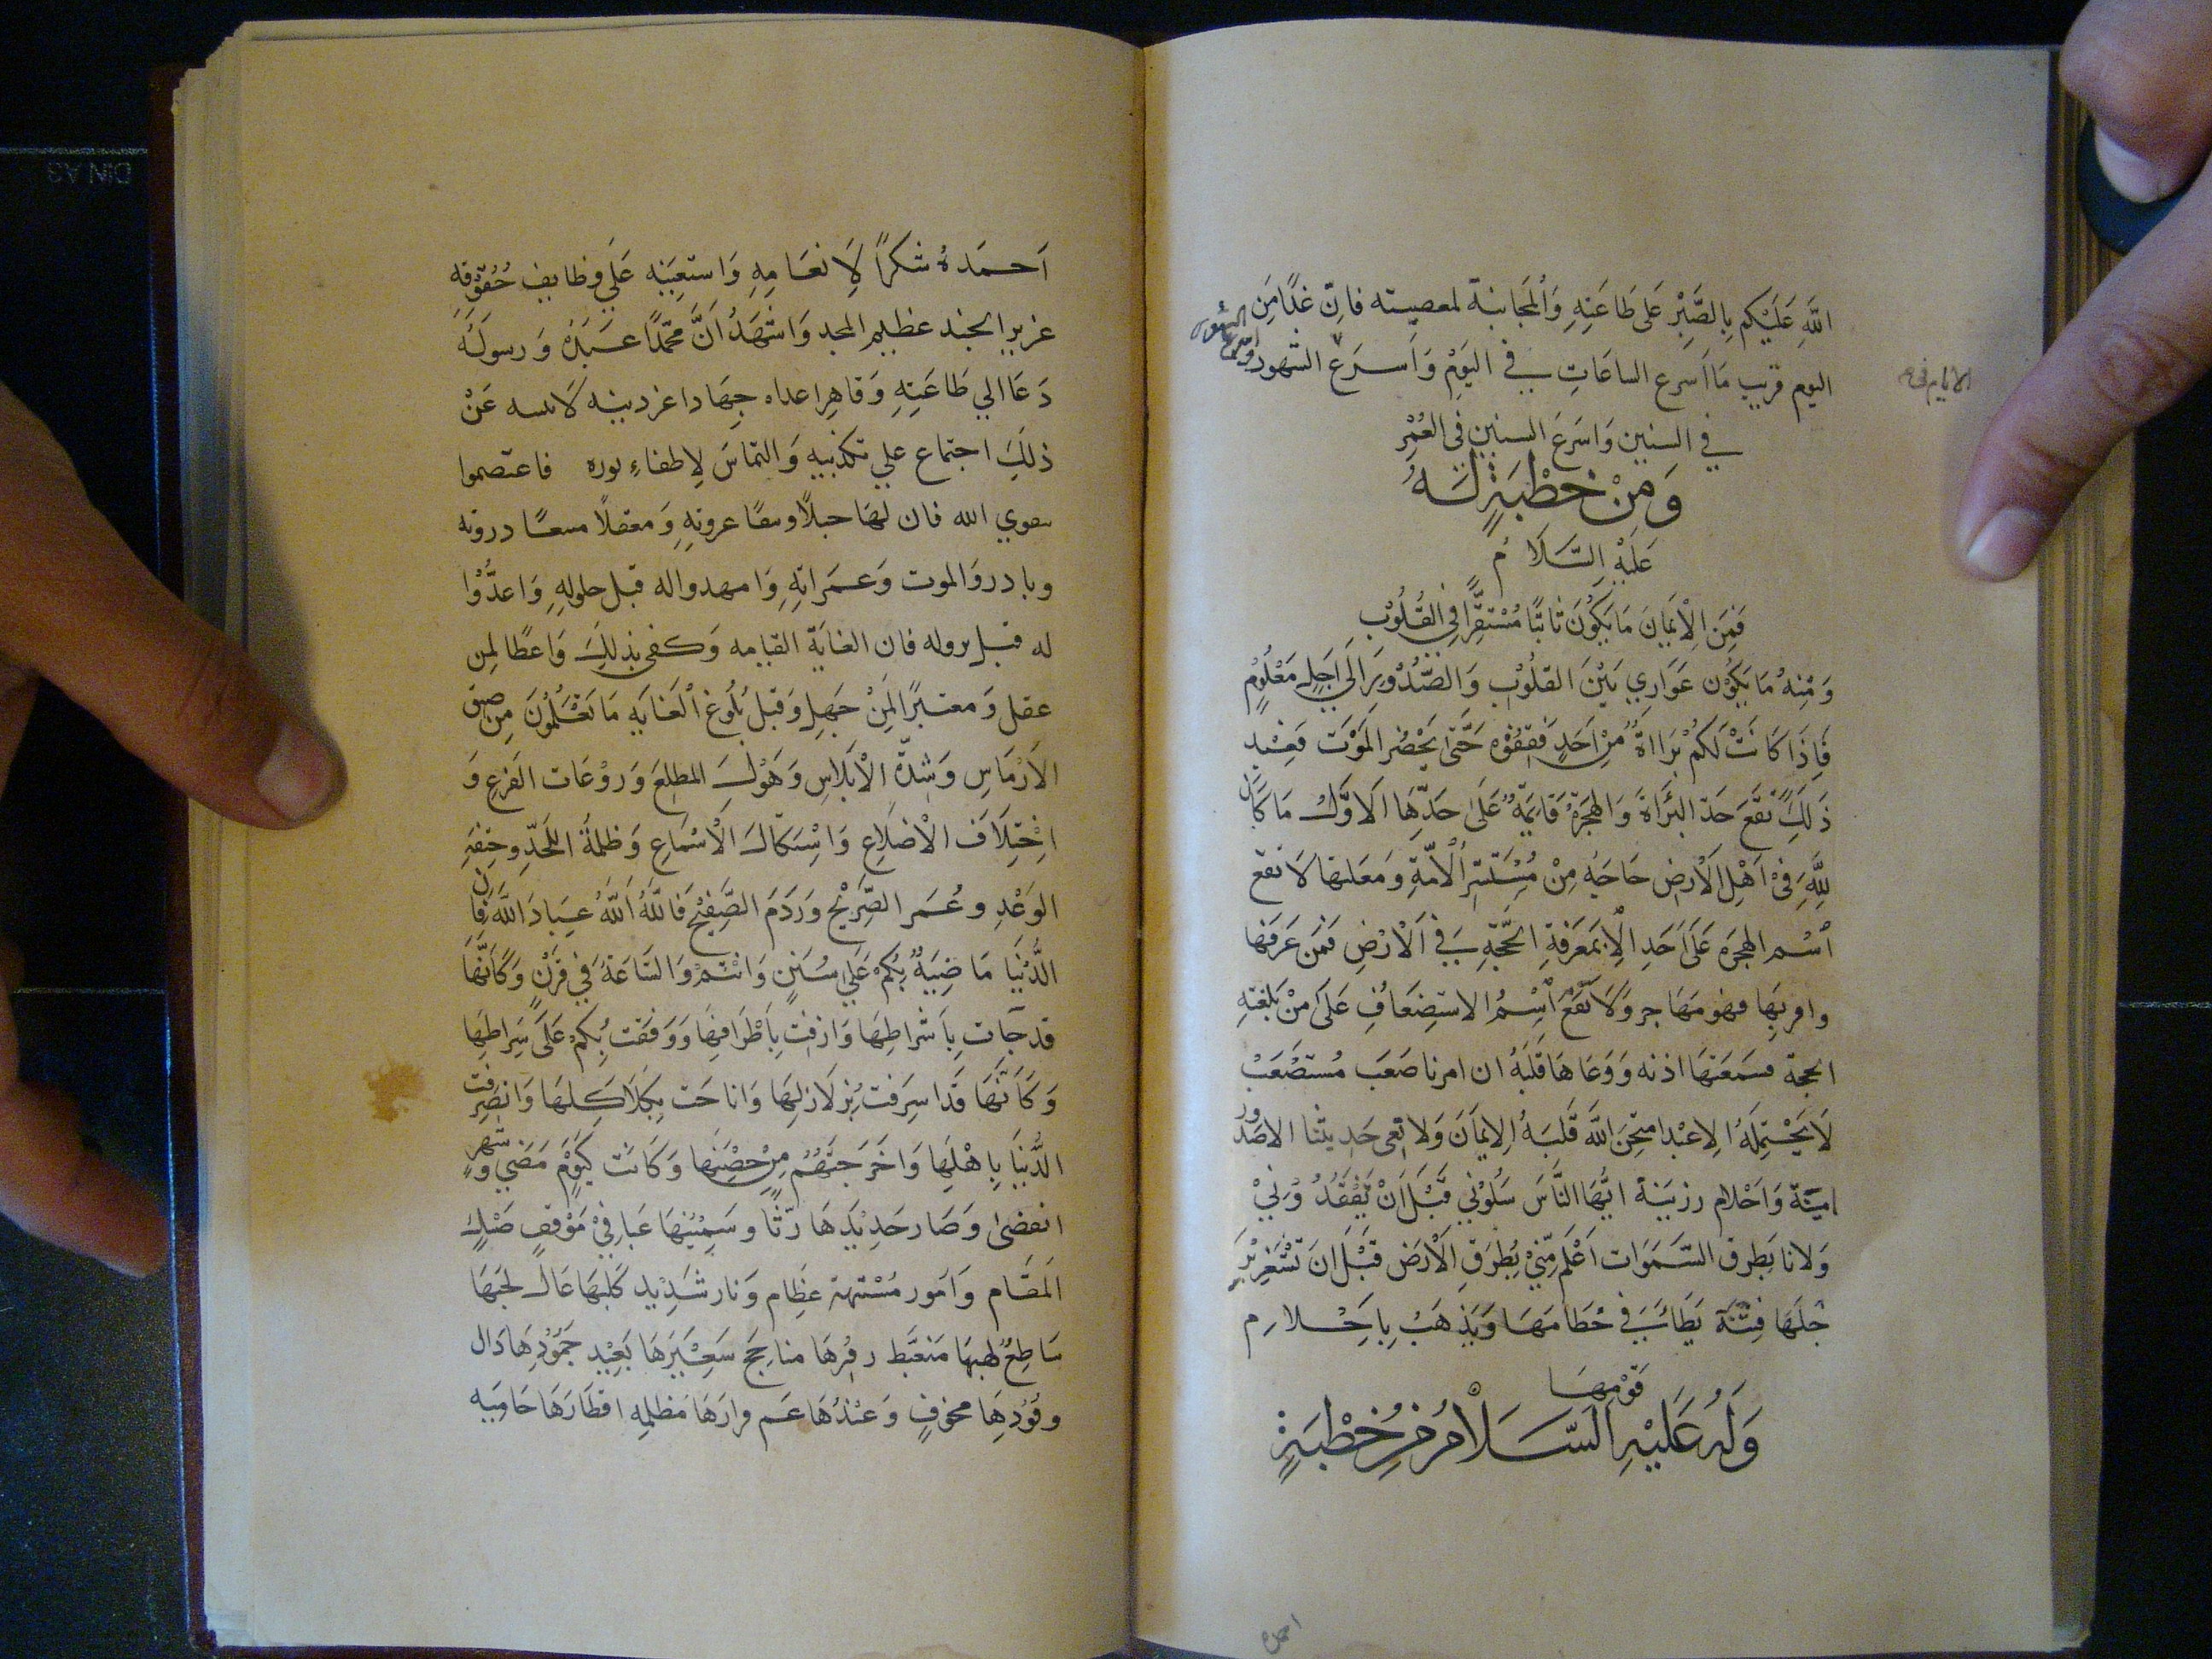 اللَّهِ عَلَيْكم بِالصَّبْرِ عَلى طَاعَتِهِ وَالمجَانبة لمعصيته فاِنّ غدًا مِنَ
اليوم قريب مَا اَسرع الساعَاتِ في اليَوْمِ وَاَسرَعَ الشهود
في السنين وَاسَرَعَ السنين فى العُمْرِ
وَمِنْ خُطْبَةٍ لَهُ
عَلَيْهِ السَّلَامُ
فَمِنَ الْاِيمَانِ مَا يَكوُنَ ثابتًا مُسْتَقِرًّا في القُلُوْب
وَمْنِهُ مَا يَكوُن عَوَارِي بَيْنَ القلُوْب وَالصُّدُوْرِ اِلَى اَجَلِ مَعْلوُمٍ
فَاِذَا كَانَتْ لَكمُ بَرَااةٌ مِنْ اَحَدٍ فَقِفُوْه حَتَّى يَحْضُر المَوْت فَعِنْد
ذَلِكَ تَقَعَ حَدّ البَرَاةَ وَالهِجَرَة قَايِمَةٌ عَلَى حَدِّهَا الَاوَّل مَا كَانَ
لِلّهِ فىْ اَهْلِ الْارض حَاجَة مِنْ مُسْتَتِرِ الْامّةِ وَمعَلنها لَا تقع
اسُم الهجرَه عَلىَ اَحَدِ الاِّ بمَعَرفةِ الحُجّةِ فِى اَلْارْضِ فمَن عَرَفَها
واقر بِهَا فهو مهَاجر وَلَا تَقَعُ اُسْمُ الاستِضعَافُ عَلَى مْن بَلغتهِ
الحجة فسَمعَتهَا اذنه وَوَعَاهَا قَلبَهُ ان امرنا صَعَب مُستَصْعَبْ
لَا يَحْتمِلَهُ اِلا عبْدا متحَن اللَّه قَلبَهُ اِلايمَانَ وَلا تعِى حَدِيثنا الاصَدُور
امِينَة وَاَحْلام رزينَة ايُّهَا النَّاسَ سَلُوْني قَبْلَ اَنْ تَفْقدُ وُنيْ
وَلانا بَطِرق السَّموَات اَعْلَم مِّنيْ بُطِرَقِ اَلْارَض قَبْلَ انَ تَشْغرَ بَرِ
جْلَهَا فِتْنَة تَطَأُ فِي خُطَامهَا وَتَذهَبُ بِاَحْلامِ
قَوْمِهَا
وَلَهُ عَلَيْهِ السَّلَامُ مِنْ خُطْبَةٍ
اَحمَدهُ شكراً لِاَنعَامِهِ وَاستعِينه عَلَي وظايف حُقُوقهِ
عزيز الجند عظيم المجد وَاشهَدُ اَنَّ محمّدًا عَبدَهُ وَرسولَهُ
دَعَا الي طَاعَتِهِ وَقاهِر اعداه جِهَادا عَن دينه لَا عَنْ
ذلَكِ اجتماع علي تكذيبهِ وَالتماسَ لِاطفاءِ نوره فاعتصموا
بتقوي الله فان لهَا حبلاً وثيقًا عروتهِ وَمعقلاً منيعًا ذروته
وبادروَا الموت وَغمَراتهِ وَامهدواله قبل حلولهِ وَاعدُّوْا
له قبل نزوله فان الغايَة القيامه وَكفى بذلَكِ وَاعظًا لمِن
عقل وَمعتبرًا لمَنْ جَهِل وَقبل بلُوغ اَلْغايَهِ مَا تَعْلَمُوْنَ مِن ضِيق
الَارْمَاسِ وَشدّة الْابْلاَسِ وَهَوْلَ المطلعَ وَروْعَات الفَزعِ وَ
اخْتِلَاف الْاضلَاع وَاسْتِكاكَ الْاسْمَاعِ وَظلمَة اللّحَدِ وخِيفة
الوَعْدِ وغُمَر الضَّرَيْح وَرَدَم الصَّفِيْحْ فَاللَّهُ اَللَّهُ عبَادَ اللَّه فَاِن
الدُّنْيَا مَاضِيَةٌ بُكمْ عَلي سُنَنٍ وَانتمْ وَالسَّاعَة فِي قَرَنْ وَكَانّهَا
قد جَآت بِاشراطهَا وَازفت بِافْرَاطهَا وَوَقفت بُكمْ عَلَى صِرَاطِهَا
وَكَانّهَا قَد اسرَفت بِزلَازلهَا وَاناخت بِكَلَاكلهَا وَانصَرفت
الدُّنيَا بِاهْلِهَا وَاخَرَجتهُمْ مِنْ حِضْنِهَا وَكَانَت كيَوْمٍ مَضي و شهر
انقضىٰ وَصَار جَدِيْدَهَا رَثًّا وسَمِيْنهَا غَثا فِيْ مَوْقفٍ ضَنْك
المَقَام وَاَمُور مُشْتبهة عِظَام وَنار شَدِيْد كَلبهَا عَال لجبَهَا
سَاطِعٌ لهبهَا مَتغيَّظ زفِرْهَا متاجج سَعِيْرَهَا بَعِيْد خمُوْدِهَا ذَال
وقوْدِهَا مخوْفٍ وَعيْدُهَا عَم قرارَهَا مَظلمه اقطارَهَا حَاميَه